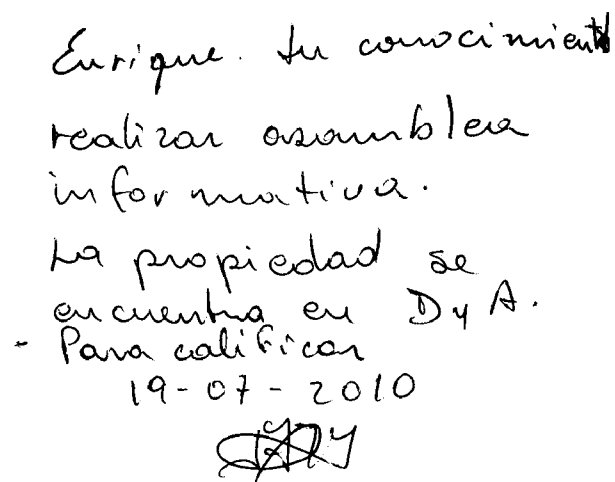 Enrique. tu conocimiento
realizar asamblea
informativa.
La propiedad se
encuentra en D y A.
- Para calificar
19-07-2010